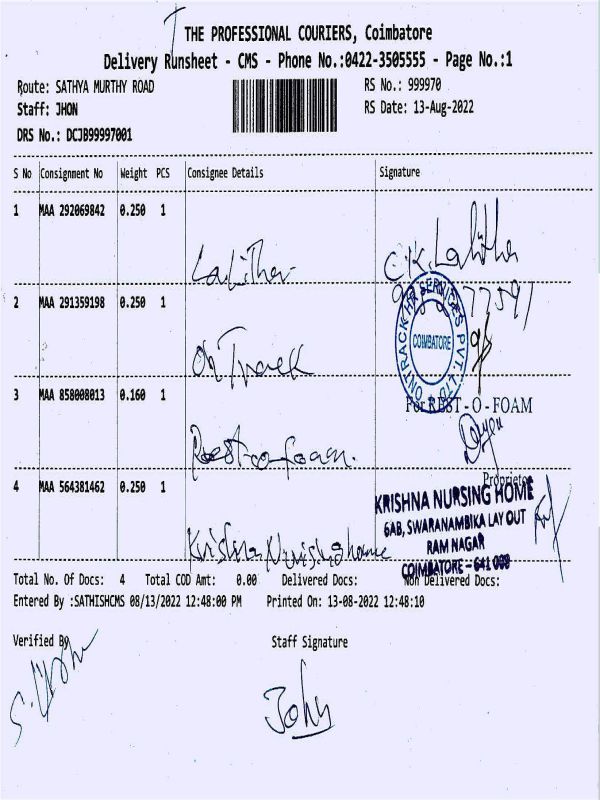 THE PROFESSIONAL COURIERS, Coimbatore
Delivery Runsheet - CMS - Phone No.:0422-3505555 - Page No.:1
Route: SATHYA MURTHY ROAD RS No.: 999970
Staff: JHON RS Date: 13-Aug-2022
DRS No.: DCJB99997001
S No Consignment No Weight PCS Consignee Details Signature
1 MAA 292069842 0.250 1
Lalitha C.K. Lalitha
2 MAA 291359198 0.250 1
On Track ONTRACK HR SERVICES PVT. LTD. COIMBATORE
3 MAA 858008013 0.160 1
For REST-O-FOAM
Rest-o-foam.
Proprietor
4 MAA 564381462 0.250 1
KRISHNA NURSING HOME
6AB, SWARANAMBIKA LAY OUT
RAM NAGAR
Krishna Nursing home COIMBATORE - 641 009
Total No. Of Docs: 4 Total COD Amt: 0.00 Delivered Docs: Non Delivered Docs:
Entered By :SATHISHCMS 08/13/2022 12:48:00 PM Printed On: 13-08-2022 12:48:10
Verified By Staff Signature
John